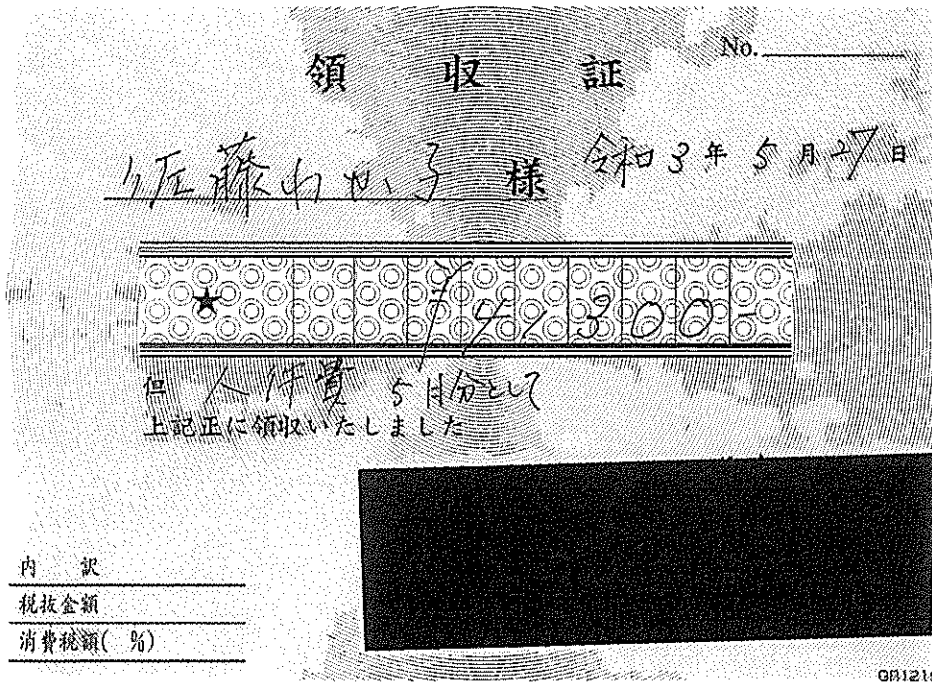 領収証
No.
佐藤わか子 様
令和3年5月27日
★ ¥41,300-
但 人件費 5月分として
上記正に領収いたしました
内 訳
税抜金額
消費税額( %)